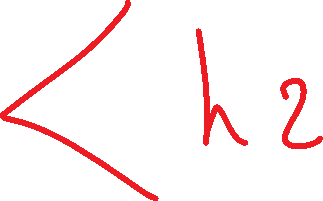 < h2